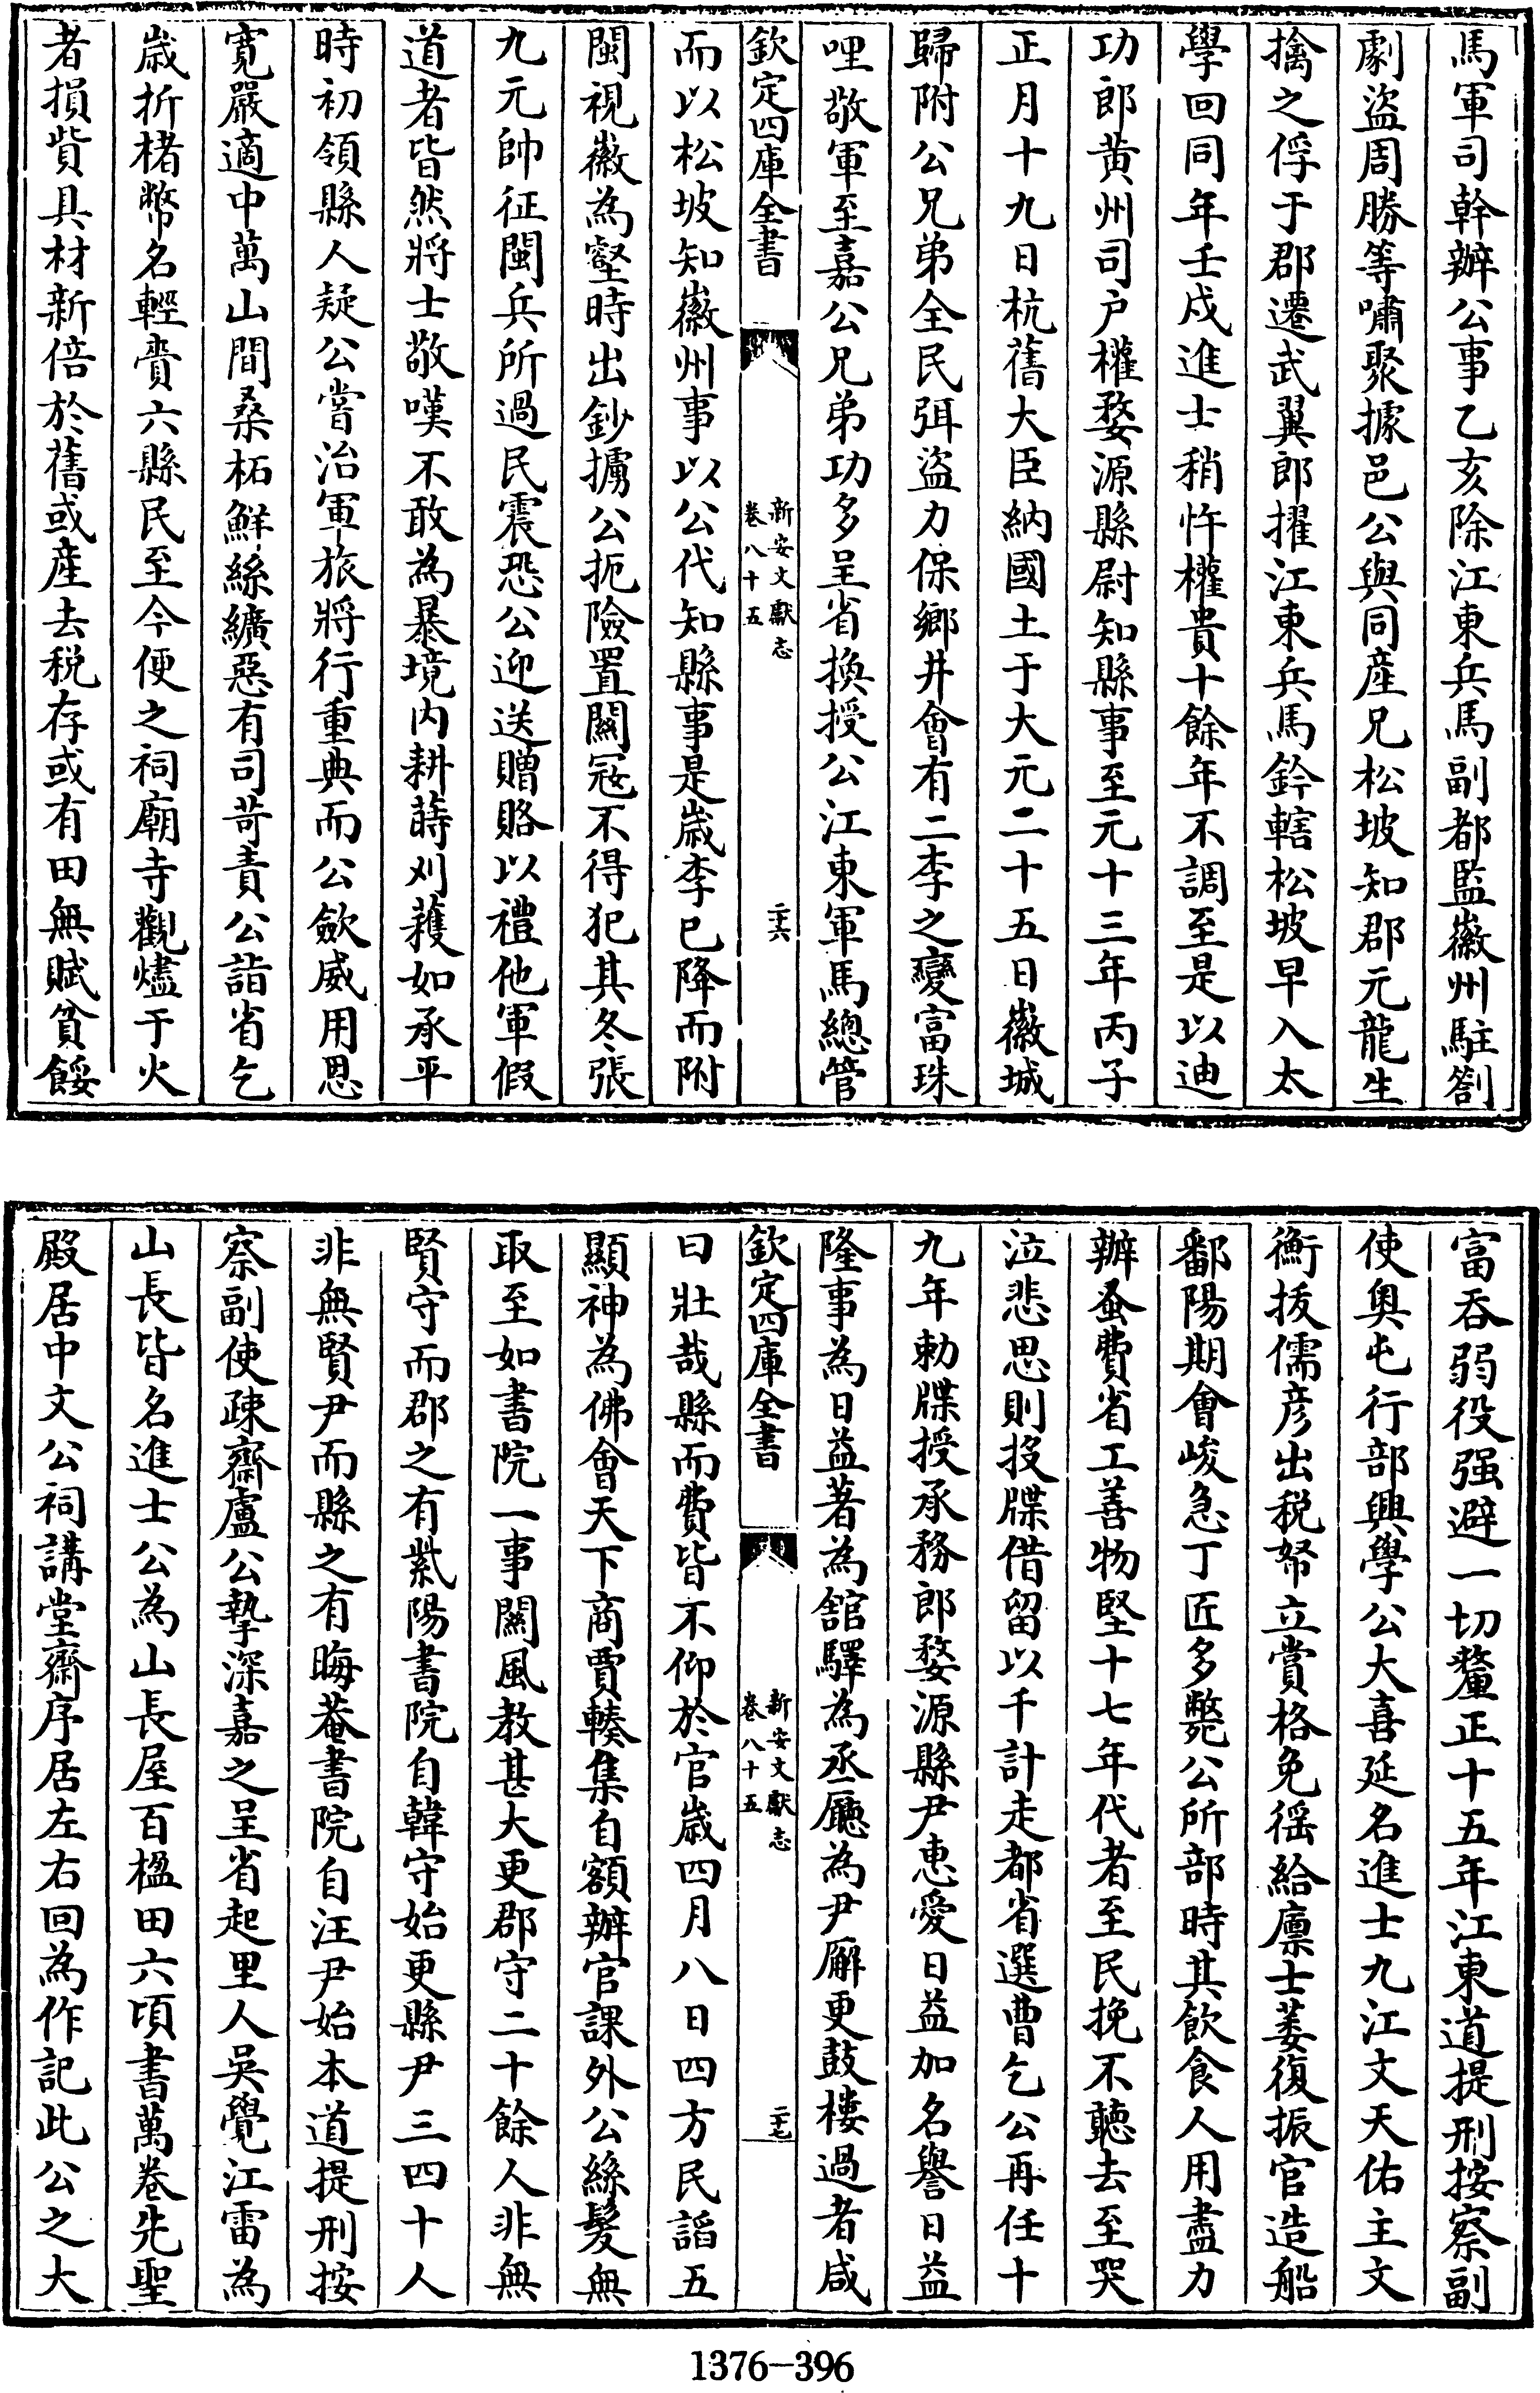 馬軍司幹辦公事乙亥除江東兵馬副都監徽州駐劄
劇盜周勝等嘯聚據邑公與同産兄松坡知郡元龍生
擒之俘于郡遷武翼郎擢江東兵馬鈐轄松坡早入太
學回同年壬戍進士稍忤權貴十餘年不調至是以迪
功郎黄州司户權婺源縣尉知縣事至元十三年丙子
正月十九日杭舊大臣納國土于大元二十五日徽城
歸附公兄弟全民弭盜力保鄉井會有二李之變富珠
哩敬軍至嘉公兄弟功多呈省換授公江東軍馬總管
欽定四庫全書
新安文獻志
卷八十五
二十六
而以松坡知徽州事以公代知縣事是歲李已降而附
閩視徽為壑時出鈔擄公扼險置關冦不得犯其冬張
九元帥征閩兵所過民震恐公迎送贈賂以禮他軍假
道者皆然將士敬嘆不敢為暴境内耕蒔刈穫如承平
時初領縣人疑公嘗治軍旅將行重典而公歛威用恩
寛嚴適中萬山間桑柘鮮絲纊惡有司苛責公詣省乞
歲折楮幣名輕賫六縣民至今便之祠廟寺觀燼于火
者損貲具材新倍於舊或産去税存或有田無賦貧餒
富吞弱役强避一切釐正十五年江東道提刑按察副
使奥屯行部興學公大喜延名進士九江文天佑主文
衡拔儒彦出税帑立賞格免徭給廪士萎復振官造船
鄱陽期會峻急丁匠多斃公所部時其飲食人用盡力
辦蚤費省工善物堅十七年代者至民挽不聽去至哭
泣悲思則投牒借留以千計走都省選曹乞公再任十
九年勅牒授承務郎婺源縣尹惠愛日益加名譽日益
隆事為日益著為舘驛為丞廳為尹廨更鼓樓過者咸
欽定四庫全書
新安文獻志
卷八十五
二十七
曰壯哉縣而費皆不仰於官歲四月八日四方民謟五
顯神為佛會天下商賈輳集自額辦官課外公絲髮無
取至如書院一事關風教甚大更郡守二十餘人非無
賢守而郡之有紫陽書院自韓守始更縣尹三四十人
非無賢尹而縣之有晦菴書院自汪尹始本道提刑按
察副使疎齋盧公摯深嘉之呈省起里人吳覺江雷為
山長皆名進士公為山長屋百楹田六頃書萬卷先聖
殿居中文公祠講堂齋序居左右回為作記此公之大
1376-396